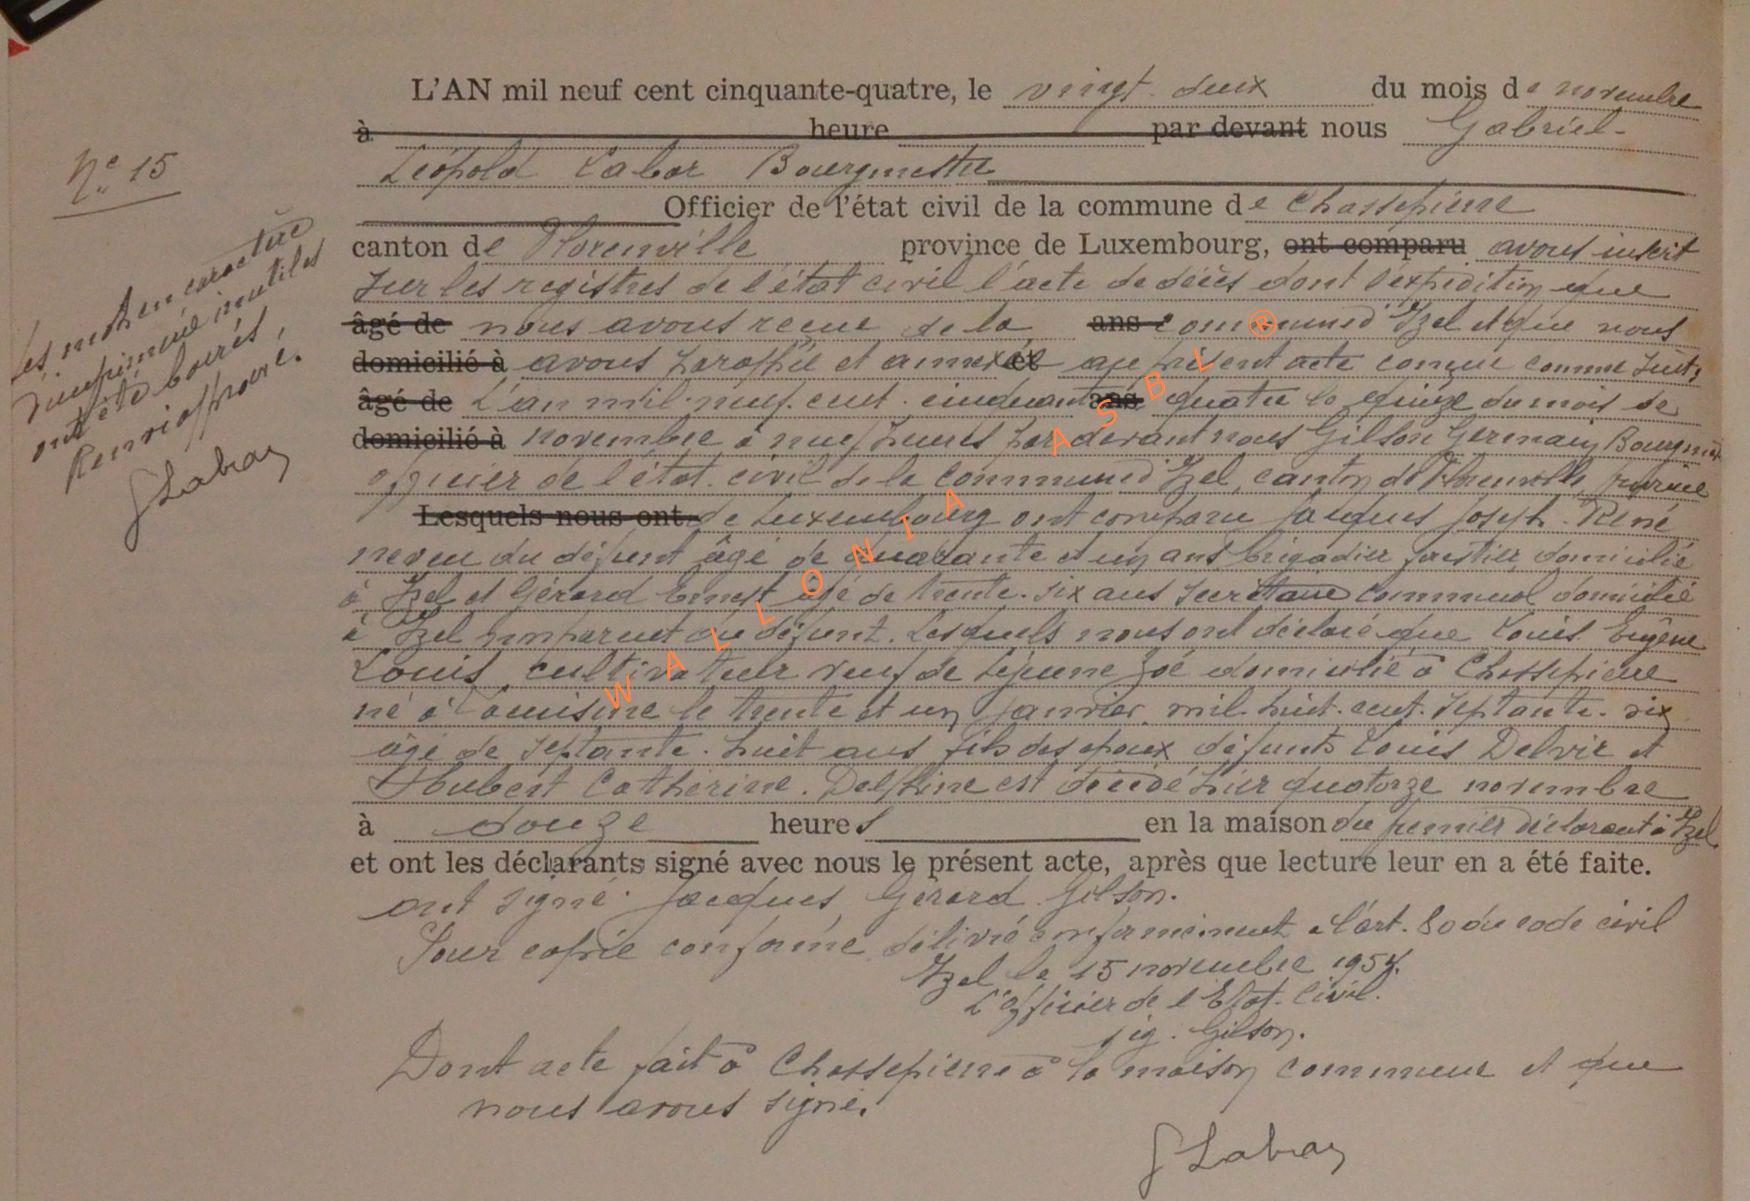 L'AN mil neuf cent cinquante-quatre, le vingt-deux du mois de novembre
à heure par devant nous Gabriel-
Léopold Labar Bourgmestre
Officier de l'état civil de la commune de Chassepierre
canton de Florenville province de Luxembourg, ont comparu avons inscrit
sur les registres de l'état civil l'acte de décès dont l'expédition que
âgé de nous avons reçue de la ans commune d'Izel et que nous
domicilié à avons paraphée et annexée et au présent acte conçue comme suit,
âgé de L'an mil. neuf. cent. cinquante ans quatre le quinze du mois de
domicilié à novembre à neuf heures par devant nous Gilson Germain, Bourgmestre
officier de l'état. civil de la commune d'Izel, canton de Florenville province
Lesquels nous ont de Luxembourg ont comparu Jacques Joseph. René
neveu du défunt âgé de quarante et un ans brigadier forestier domicilié
à Izel et Gérard Ernest âgé de trente. six ans secrétaire communal domicilié
à Izel non parent du défunt. Lesquels nous ont déclaré que Louis Eugène
Louis, cultivateur veuf de Lejeune Zoé domicilié à Chassepierre
né à le trente et un janvier mil. huit. cent. septante. six
âgé de septante. huit ans fils des époux défunts Louis et
Hubert Catherine. Delphine est décédé hier quatorze novembre
à douze heures en la maison du premier déclarant à Izel
et ont les déclarants signé avec nous le présent acte, après que lecture leur en a été faite.
ont signé. Jacques, Gérard. Gilson.
Pour copie conforme délivré conformément à l'art. 80 du code civil
Izel le 15 novembre 1954.
L'Officier de l'Etat. Civil.
sig. Gilson.
Dont acte fait à Chassepierre à la maison commune et que
nous avons signé.
G Labar
N° 15
Les mots en caractère
imprimé inutiles
ont été barrés,
Renvoi approuvé.
G Labar
WALLONIA ASBL ®